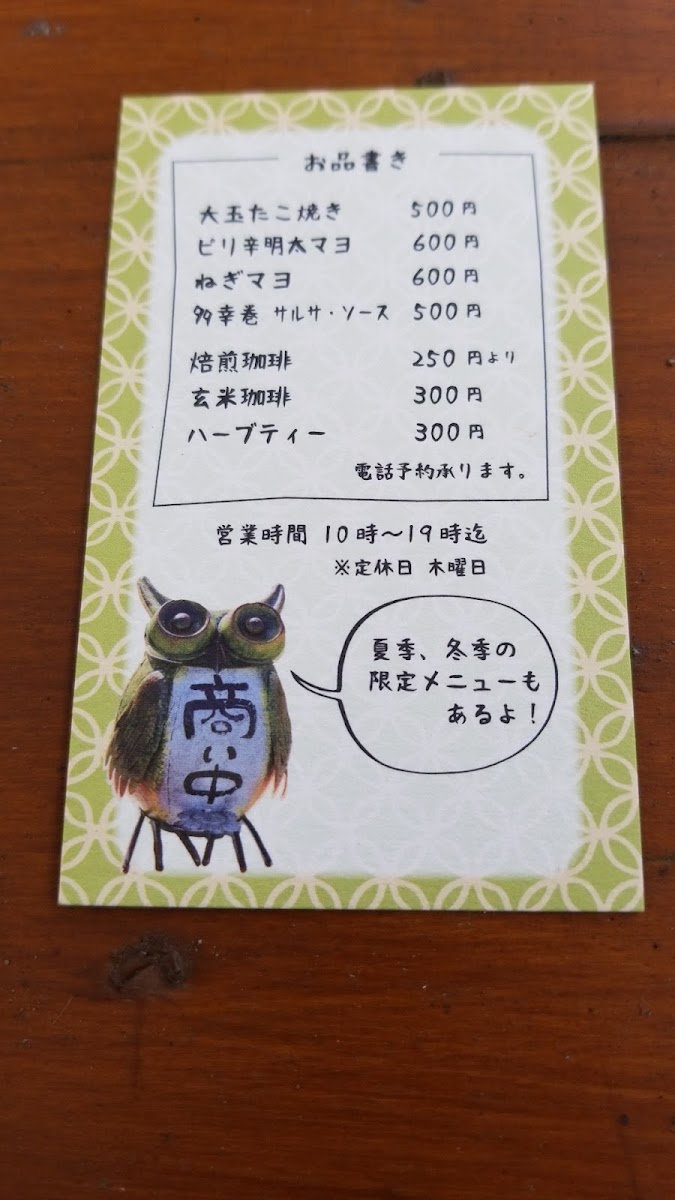 お品書き
大玉たこ焼き 500円
ピリ辛明太マヨ 600円
ねぎマヨ 600円
多幸巻 サルサ・ソース 500円
焙煎珈琲 250円より
玄米珈琲 300円
ハーブティー 300円
電話予約承ります。
営業時間 10時～19時迄
※定休日 木曜日
夏季、冬季の
限定メニューも
あるよ！
商い中